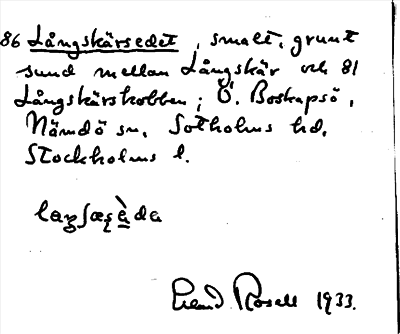 86 Långskärsedet, smalt, grunt
sund mellan Långskär och 81
Långskärskobben; Ö. Boskapsö,
Nämdö sn. Sotholms hd.
Stockholms l.
Rosell 1933.